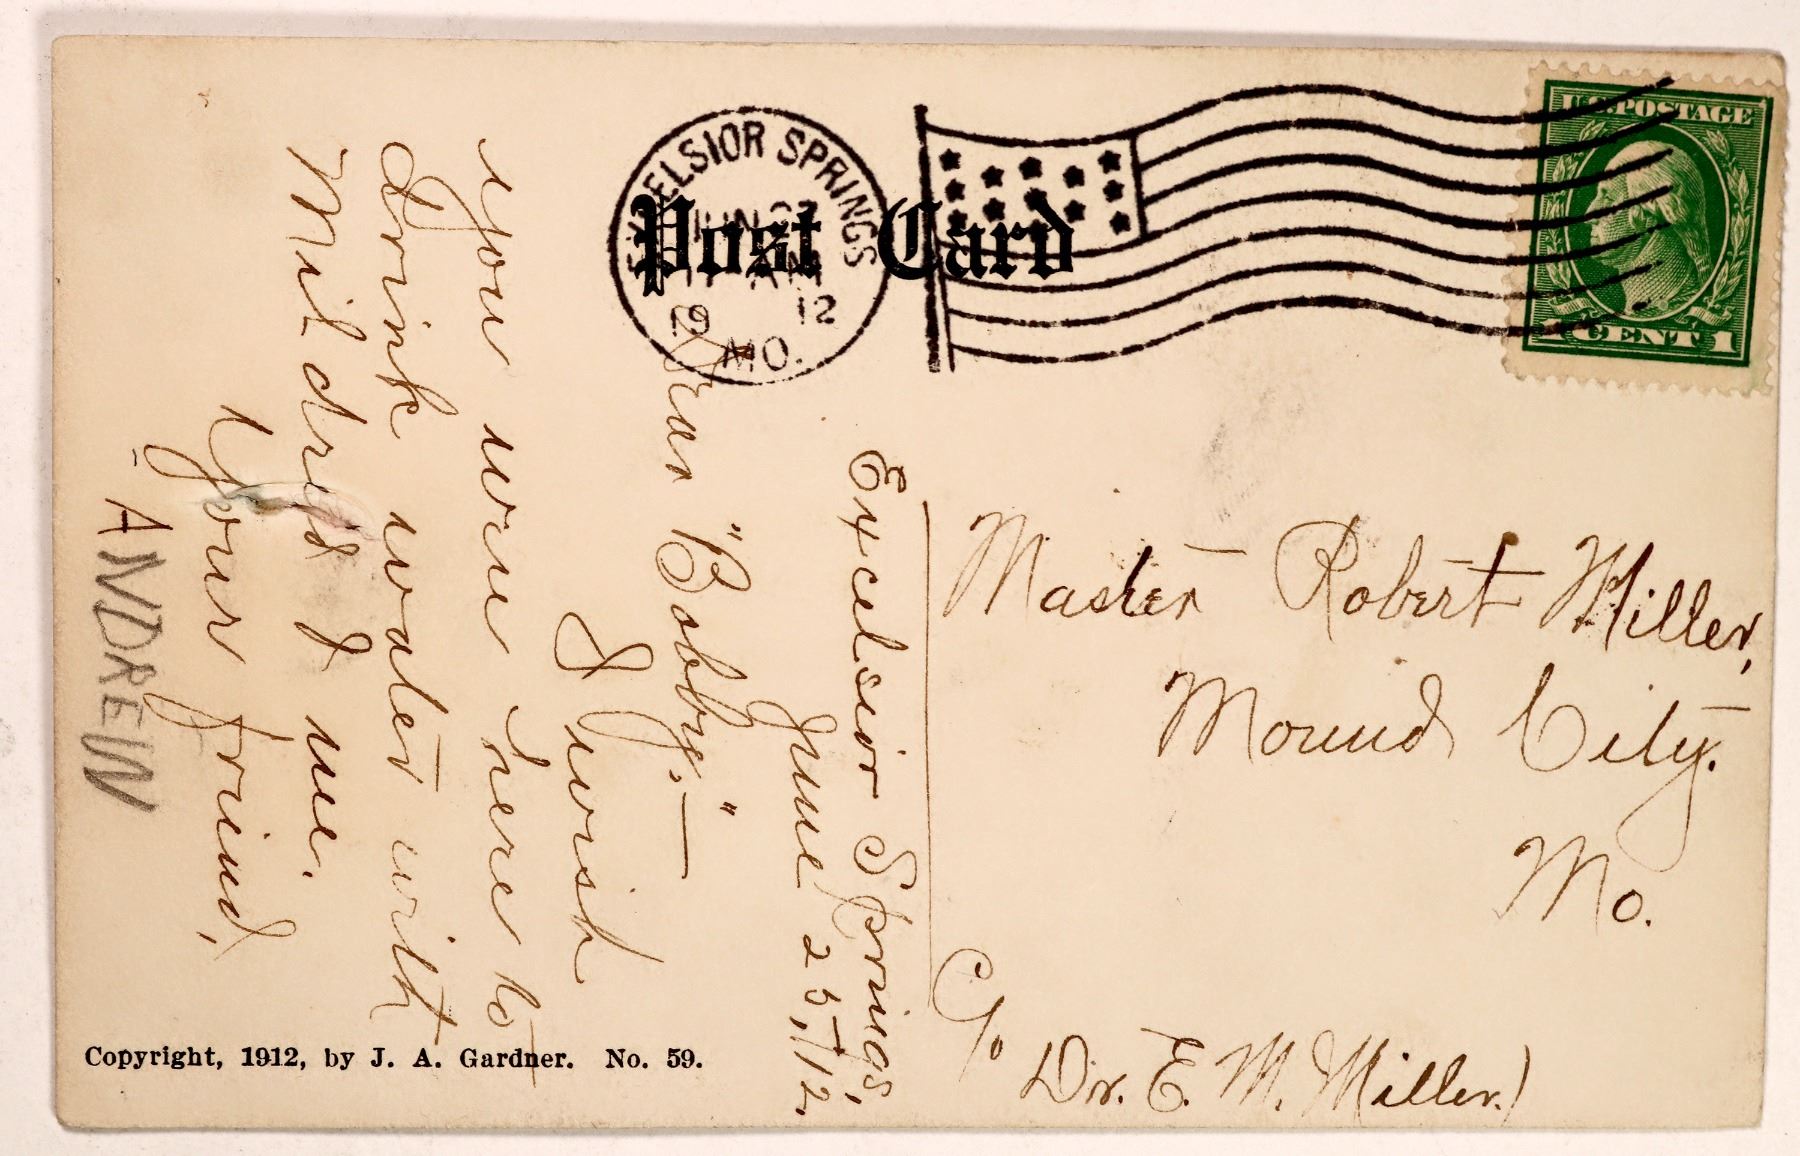 EXCELSIOR SPRINGS
JUN 27
11 AM
12
MO.
Post Card
U.S. POSTAGE
1 CENT 1
Excelsior Springs,
June 25, 12.
Dear "Bobby:"—
I wish
you were here to
Drink water with
Mildred & me.
Your friend,
- ANDREW
Master Robert Miller,
Mound City.
Mo.
C/o
Dr. E. M. Miller)
Copyright, 1912, by J. A. Gardner. No. 59.